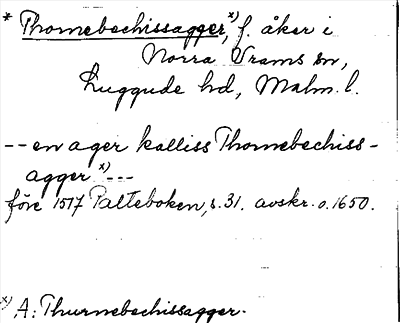 * Thornebechissagger, x) f. åker i
Norra Vrams sn,
Luggude hd, Malm. l.
-- en ager kalliss Thornebechiss-
agger x) ---
före 1517 Palteboken, s. 31. avskr. o. 1650.
x) A: Thurnebechissagger.